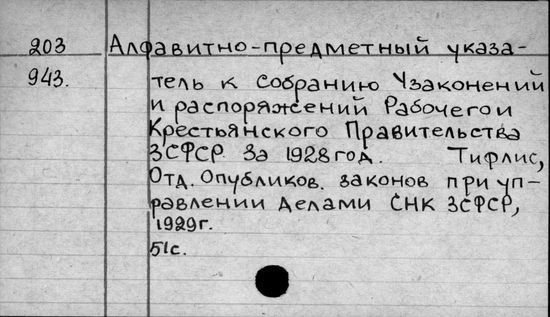 203 Алфавитно-предметный указа-
943. тель к Собранию Узаконений
и распоряжений Рабочего и
Крестьянского Правительства
ЗСФСР за 1928 год. Тифлис,
Отд. Опубликов. законов при уп-
равлении делами СНК ЗСФСР,
1929г.
51с.